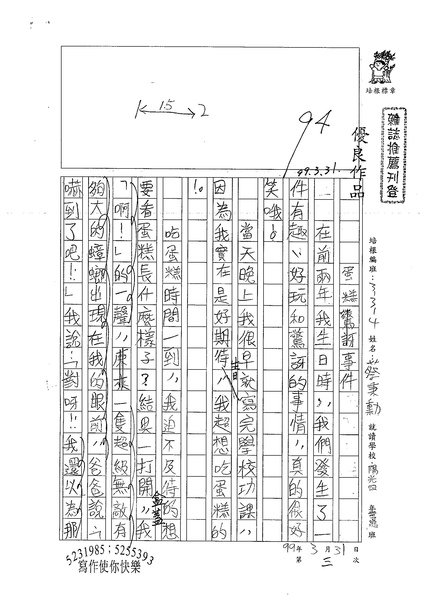 培根標章
雜誌推薦刊登
優良作品
94
99.3.31.
15
2
培根編班：33314 姓名 秉勳 就讀學校 陽光四 班
蛋糕驚訝事件
在前兩年我生日時，我們發生了一
件有趣、好玩和驚訝的事情，真的很好
笑哦！
當天晚上我很早就寫完學校功課，
因為我實在是好期待，我超想吃蛋糕的
！。
吃蛋糕時間一到，我迫不及待的想
要看蛋糕長什麼樣子？結果一打開盒蓋，我
「啊！」的一聲，原來一隻超級無敵有
夠大的蟑螂出現在我的眼前，爸爸說：「
嚇到了吧！」我說：「對呀！我還以為那
99年3月31日
第三次
5231985；5255393
寫作使你快樂